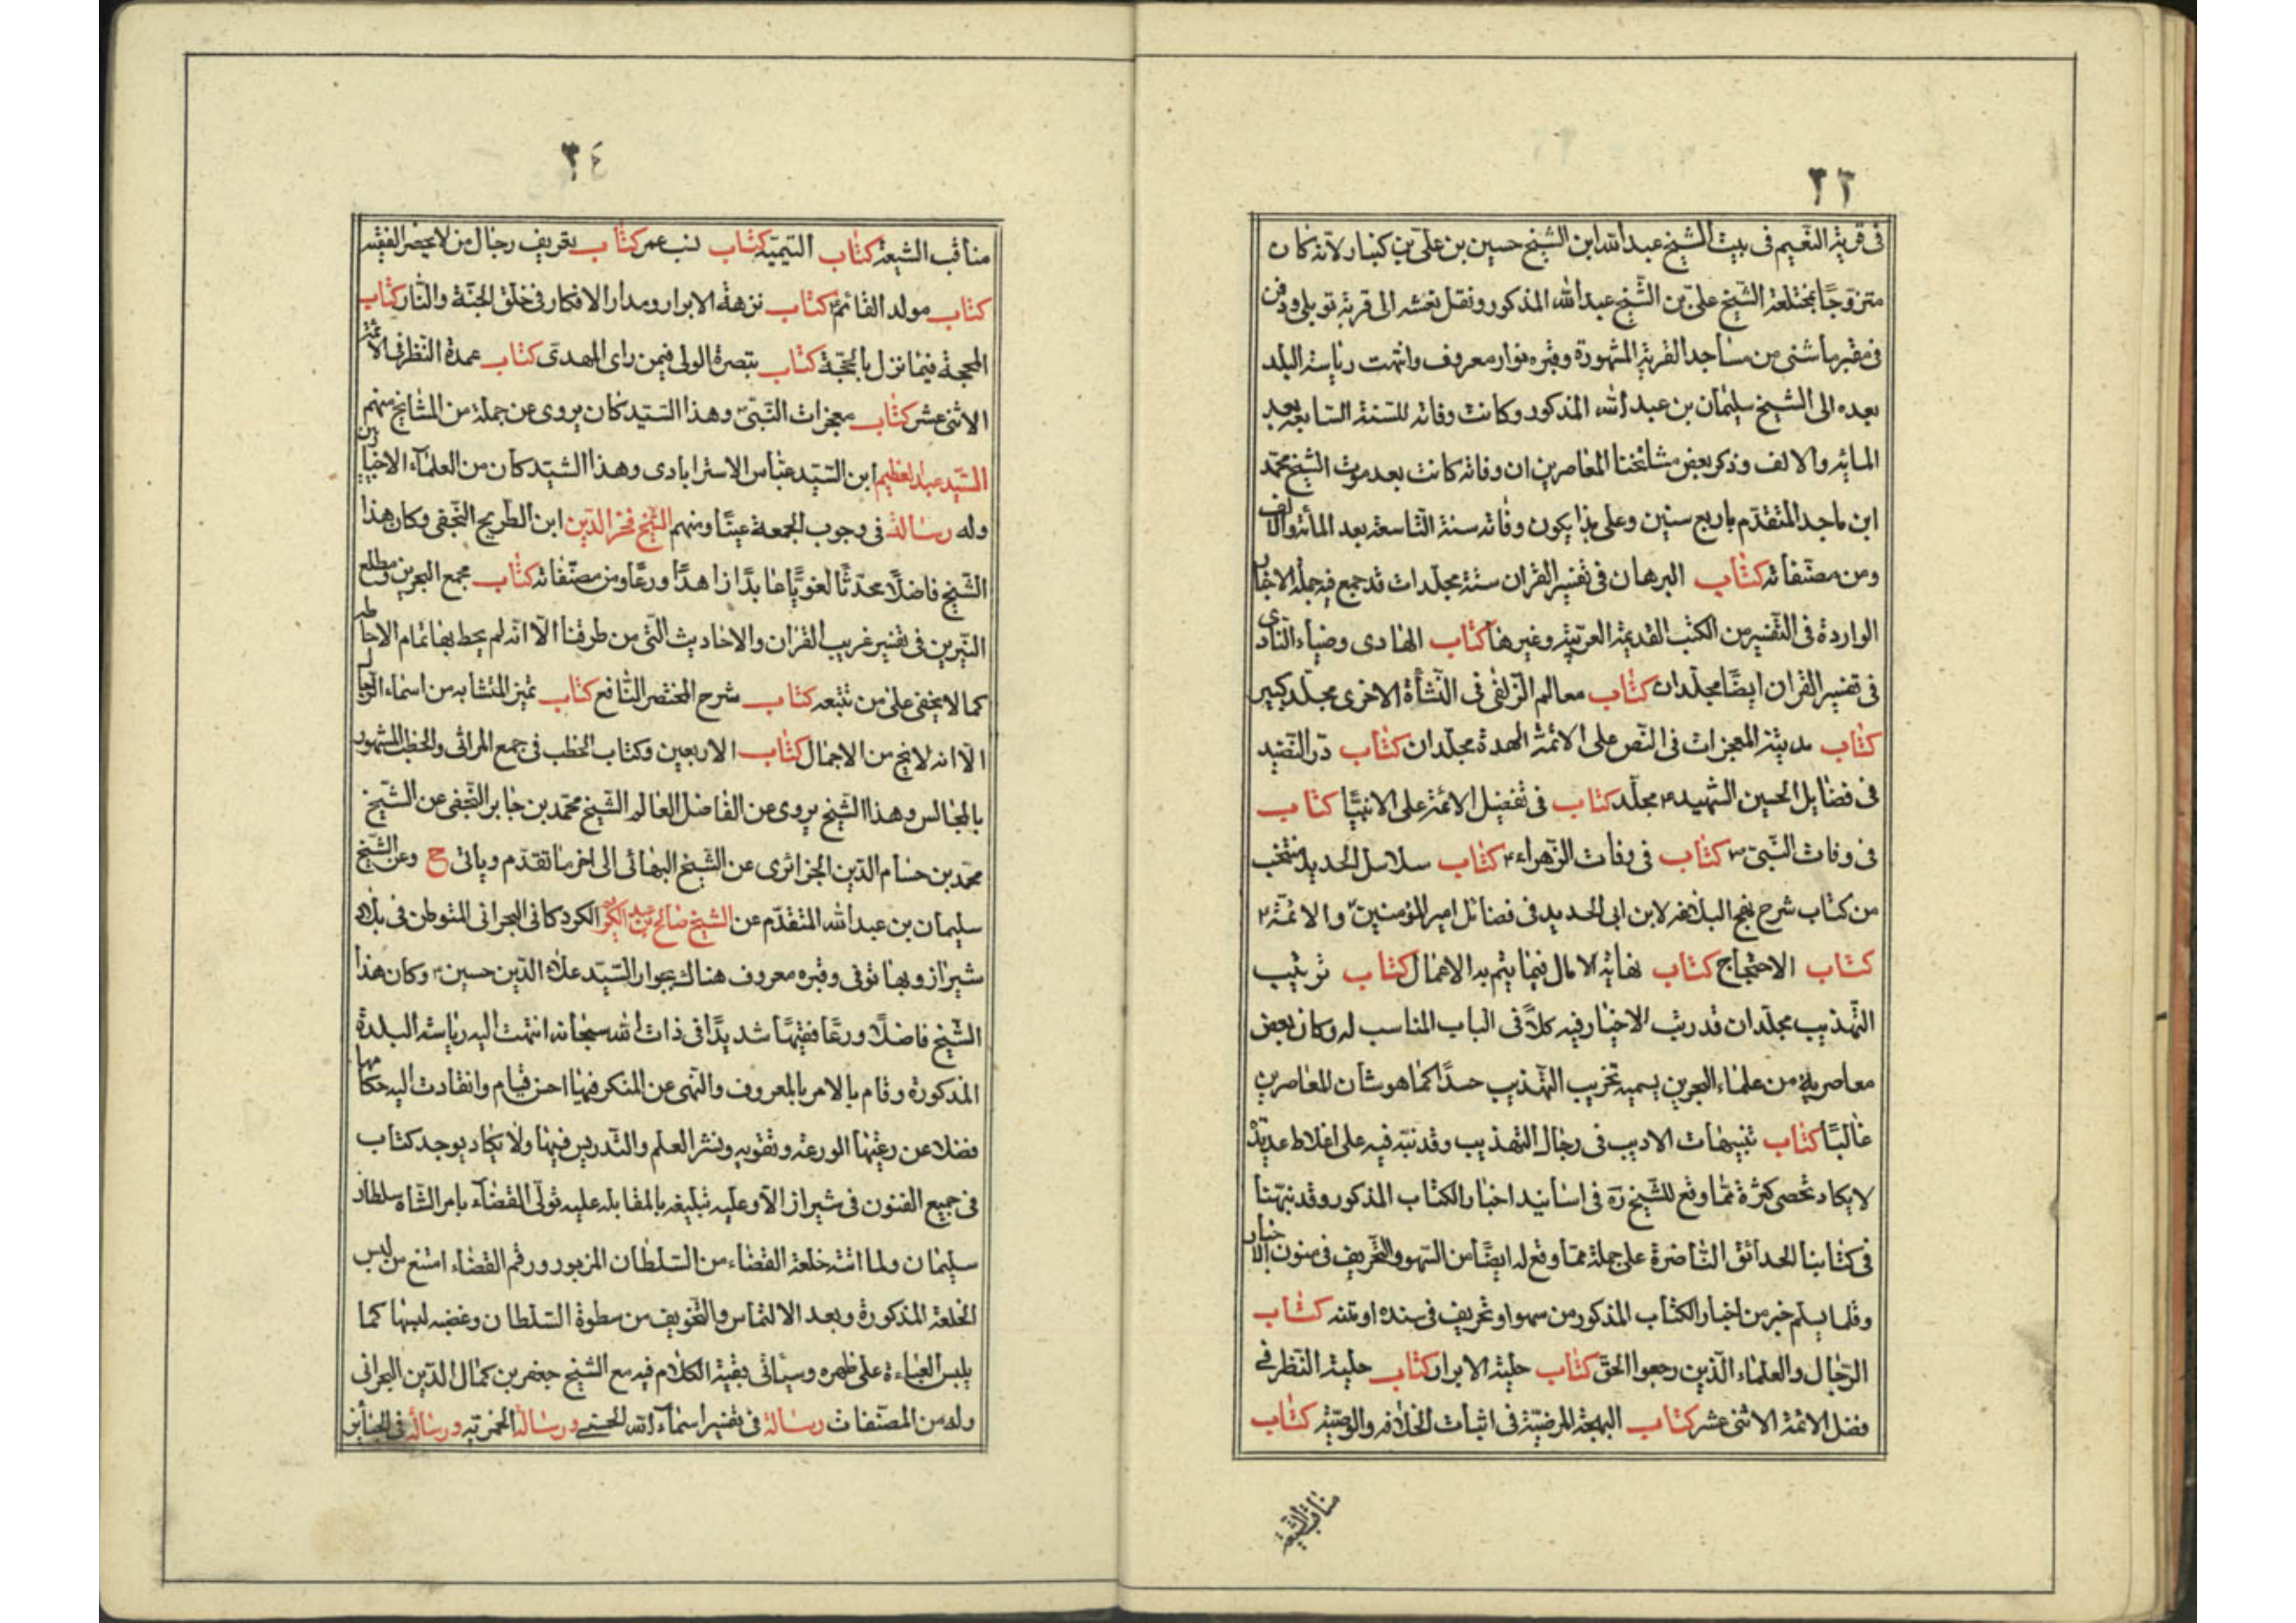 ٣٣
في قرية النعيم في بيت الشيخ عبد الله ابن الشيخ حسين بن علي بن كنبار لانه كان
متزوجًا بمختلعة الشيخ علي بن الشيخ عبد الله المذكور ونقل نعشه الى قرية توبلي ودفن
في مقبرة ماثني من مساجد القرية المشهورة وقبره مزار معروف وانتهت رياسة البلد
بعده الى الشيخ سليمان بن عبد الله المذكور وكانت وفاته للسنة السابعة بعد
المائة والالف وذكر بعض مشائخنا المعاصرين ان وفاته كانت بعد موت الشيخ محمد
ابن ماجد المتقدم باربع سنين وعلى هذا يكون وفاته سنة التاسعة بعد المائة والالف
ومن مصنفاته كتاب البرهان في تفسير القران ستة مجلدات قد جمع فيه جملة الاخبار
الواردة في التفسير من الكتب القديمة العربية وغيرها كتاب الهادي وضياء النادي
في تفسير القران ايضًا مجلدان كتاب معالم الزلفى في النشأة الاخرى مجلد كبير
كتاب مدينة المعجزات في النص على الائمة الهداة مجلدان كتاب در النضيد
في فضايل الحسين الشهيد ع مجلد كتاب في تفضيل الائمة على الانبيا كتاب
في وفات النبي ص كتاب في وفات الزهراء ع كتاب سلاسل الحديد منتخب
من كتاب شرح نهج البلاغة لابن ابي الحديد في فضائل امير المؤمنين والائمة ع
كتاب الاحتجاج كتاب نهاية الامال فيما يتم به الاعمال كتاب ترتيب
التهذيب مجلدان قد رتب الاخبار فيه كلاً في الباب المناسب له وكان بعض
معاصريه من علماء البحرين يسميه تخريب التهذيب حسدًا كما هو شان المعاصرين
غالبًا كتاب تنبيهات الاديب في رجال التهذيب وقد نبه فيه على اغلاط عديدة
لا يكاد تحصى كثرة مما وقع للشيخ ره في اسانيد اخبار الكتاب المذكور وقد نبهنا
في كتابنا الحدائق الناضرة على جملة مما وقع له ايضًا من السهو والتحريف في متون الاخبار
وقلما يسلم خبر من اخبار الكتاب المذكور من سهو او تحريف في سنده او متنه كتاب
الرجال والعلماء الذين رجعوا الحق كتاب حلية الابرار كتاب حلية النظر في
فضل الائمة الاثنى عشر كتاب البهجة المرضية في اثبات الخلافة والوصية كتاب
مناقب الشيعة
٣٤
مناقب الشيعة كتاب اليتيمة كتاب نسب عمر كتاب تعريف رجال من لا يحضر الفقيه
كتاب مولد القائم ع كتاب نزهة الابرار ومدار الافكار في خلق الجنة والنار كتاب
المحجة فيما نزل بالحجة كتاب تبصرة الولي فيمن راى المهدي كتاب عمدة النظر في الائمة
الاثنى عشر كتاب معجزات النبي وهذا السيد كان يروي عن جملة من المشائخ منهم
السيد عبد العظيم ابن السيد عباس الاسترابادي وهذا السيد كان من العلماء الاخباريين
وله رسالة في وجوب الجمعة عينًا ومنهم الشيخ فخر الدين ابن الطريح النجفي وكان هذا
الشيخ فاضلًا محدثًا لغويًا عابدًا زاهدًا ورعًا ومن مصنفاته كتاب مجمع البحرين ومطلع
النيرين في تفسير غريب القران والاحاديث التي من طرقنا الا انه لم يحط بها تمام الاحاطه
كما لا يخفى على من تتبعه كتاب شرح المختصر النافع كتاب تميز المتشابه من اسماء الرجال
الا انه لا نج من الاجمال كتاب الاربعين وكتاب الخطب في جمع المراثي والخطب المشهور
بالمجالس وهذا الشيخ يروي عن الفاضل العالم الشيخ محمد بن جابر النجفي عن الشيخ
محمد بن حسام الدين الجزائري عن الشيخ البهائي الى اخر ما تقدم وياتي ح وعن الشيخ
سليمان بن عبد الله المتقدم عن الشيخ صالح بن عبد الكريم الكردكاني البحراني المتوطن في بلاد
شيراز وبها توفي وقبره معروف هناك بجوار السيد علاء الدين حسين وكان هذا
الشيخ فاضلًا ورعًا فقيهًا شديدًا في ذات الله سبحانه انتهت اليه رياسة البلدة
المذكورة وقام بالامر بالمعروف والنهى عن المنكر فيها احسن قيام وانقادت اليه حكامها
فضلا عن رعيتها الورعه وتقويه ونشر العلم والتدريس فيها ولا يكاد يوجد كتاب
في جميع الفنون في شيراز الا وعليه تبليغه بالمقابلة عليه تولى القضاء بامر الشاه سلطان
سليمان ولما اتته خلعة القضاء من السلطان المزبور ورقم القضاء امتنع من لبس
الخلعة المذكورة وبعد الالتماس والتخويف من سطوة السلطان وغضبه لبسها كما
يلبس العباءة على ظهره وسياتي بقية الكلام فيه مع الشيخ جعفر بن كمال الدين البحراني
وله من المصنفات رسالة في تفسير اسماء الله الحسنى ورسالة الخمرية ورسالة في الجنائز